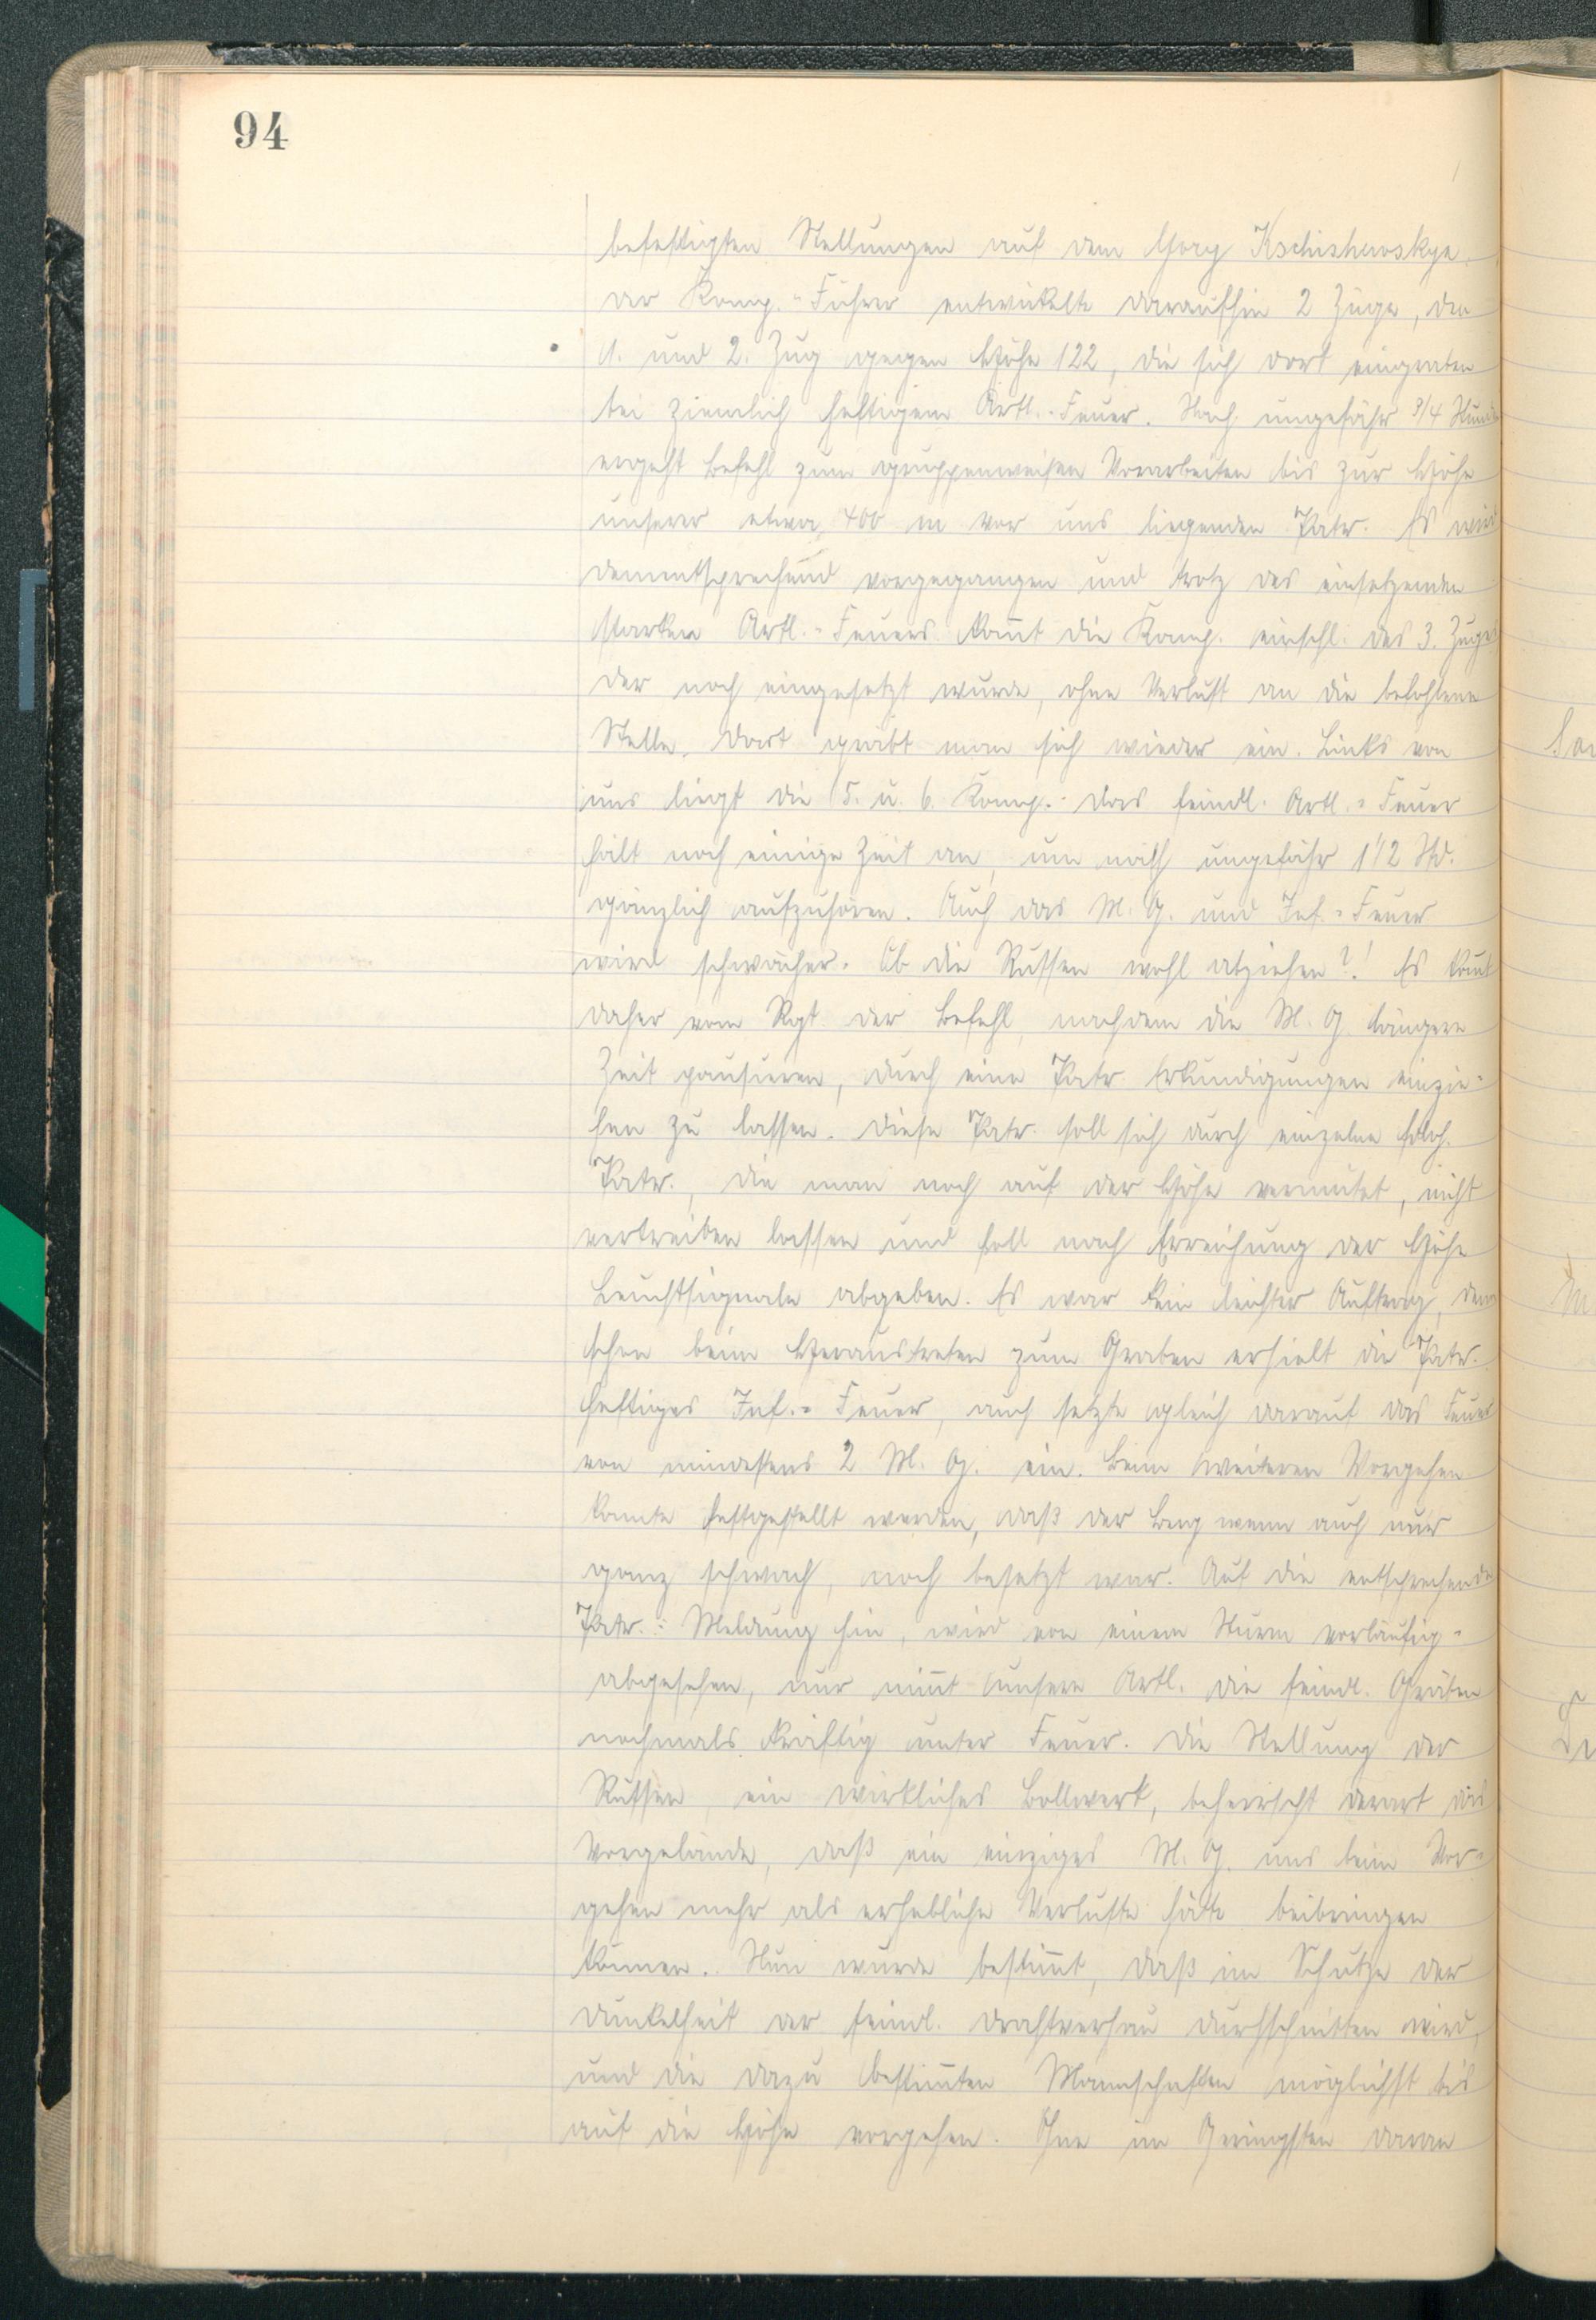 94
befestigten Stellungen auf dem Gory Kschishewskye.
der Komp.-Führer entwickelte daraufhin 2 Züge, den
1. und 2. Zug gegen Höhe 122, die sich dort eingraben
bei ziemlich heftigem Artl.-Feuer. Nach ungefähr 3/4 Stunde
ergeht Befehl zum gruppenweisen Vorarbeiten bis zur Höhe
unserer etwa 400 m vor uns liegenden Patr. Es wird
dementsprechend vorgegangen und trotz des einsetzenden
starken Artl.-Feuers kom̄t die Komp. einschl. des 3. Zuges
der noch eingesetzt wurde, ohne Verlust an die befohlene
Stelle. Dort gräbt man sich wieder ein. Links von
uns liegt die 5. u. 6. Komp. Das feindl. Artl.-Feuer
hält noch einige Zeit an, um nach ungefähr 1 1/2 Std.
gänzlich aufzuhören. Auch das M. G. und Inf.-Feuer
wird schwächer. Ob die Russen wohl abziehen?! Es kom̄t
daher vom Rgt. der Befehl, nachdem die M. G. längere
Zeit pausieren, durch eine Patr. Erkundigungen einzie-
hen zu lassen. Diese Patr. soll sich durch einzelne
Patr., die man noch auf der Höhe vermutet, nicht
vertreiben lassen und soll nach Erreichung der Höhe
Leuchtsignale abgeben. Es war kein leichter Auftrag, denn
schon beim Heraustreten zum Graben erhielt die Patr.
heftiges Inf.-Feuer, auch setzte gleich darauf das Feuer
von mindestens 2 M. G. ein. Beim weiteren Vorgehen
konnte festgestellt werden, daß der Berg wenn auch nur
ganz schwach, noch besetzt war. Auf die entsprechende
Patr.-Meldung hin, wird von einem Sturm vorläufig
abgesehen, nur nim̄t unsere Artl. die feindl. Gräben
nochmals kräftig unter Feuer. Die Stellung der
Russen, ein wirkliches Bollwerk, beherrscht derart das
Vorgelände, daß ein einziges M. G. uns beim Vor-
gehen mehr als erhebliche Verluste hätte beibringen
können. Nun wurde bestim̄t, daß im Schutze der
Dunkelheit der feindl. Drahtverhau durchschnitten wird,
und die dazu bestim̄ten Mannschaften möglichst bis
auf die Höhe vorgehen. Ohne im Geringsten daran